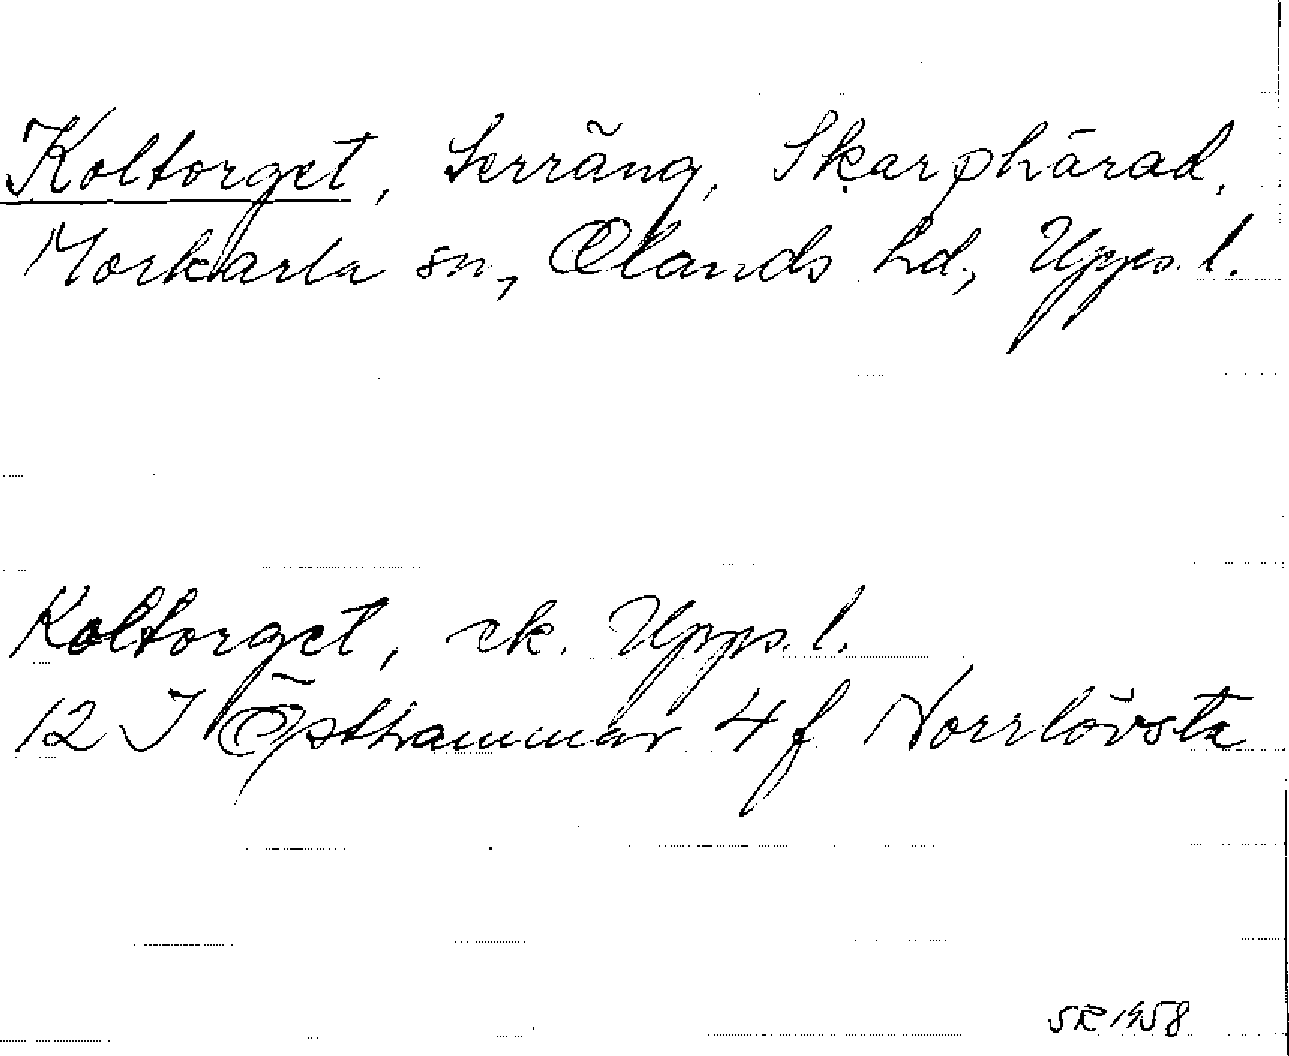 Koltorget, Terräng, Skarphärad,
Morkarla sn, Olands hd, Upps. l.
Koltorget, ek. Upps. l.
12 I Östhammar 4 f Norrlövsta
SR 1958